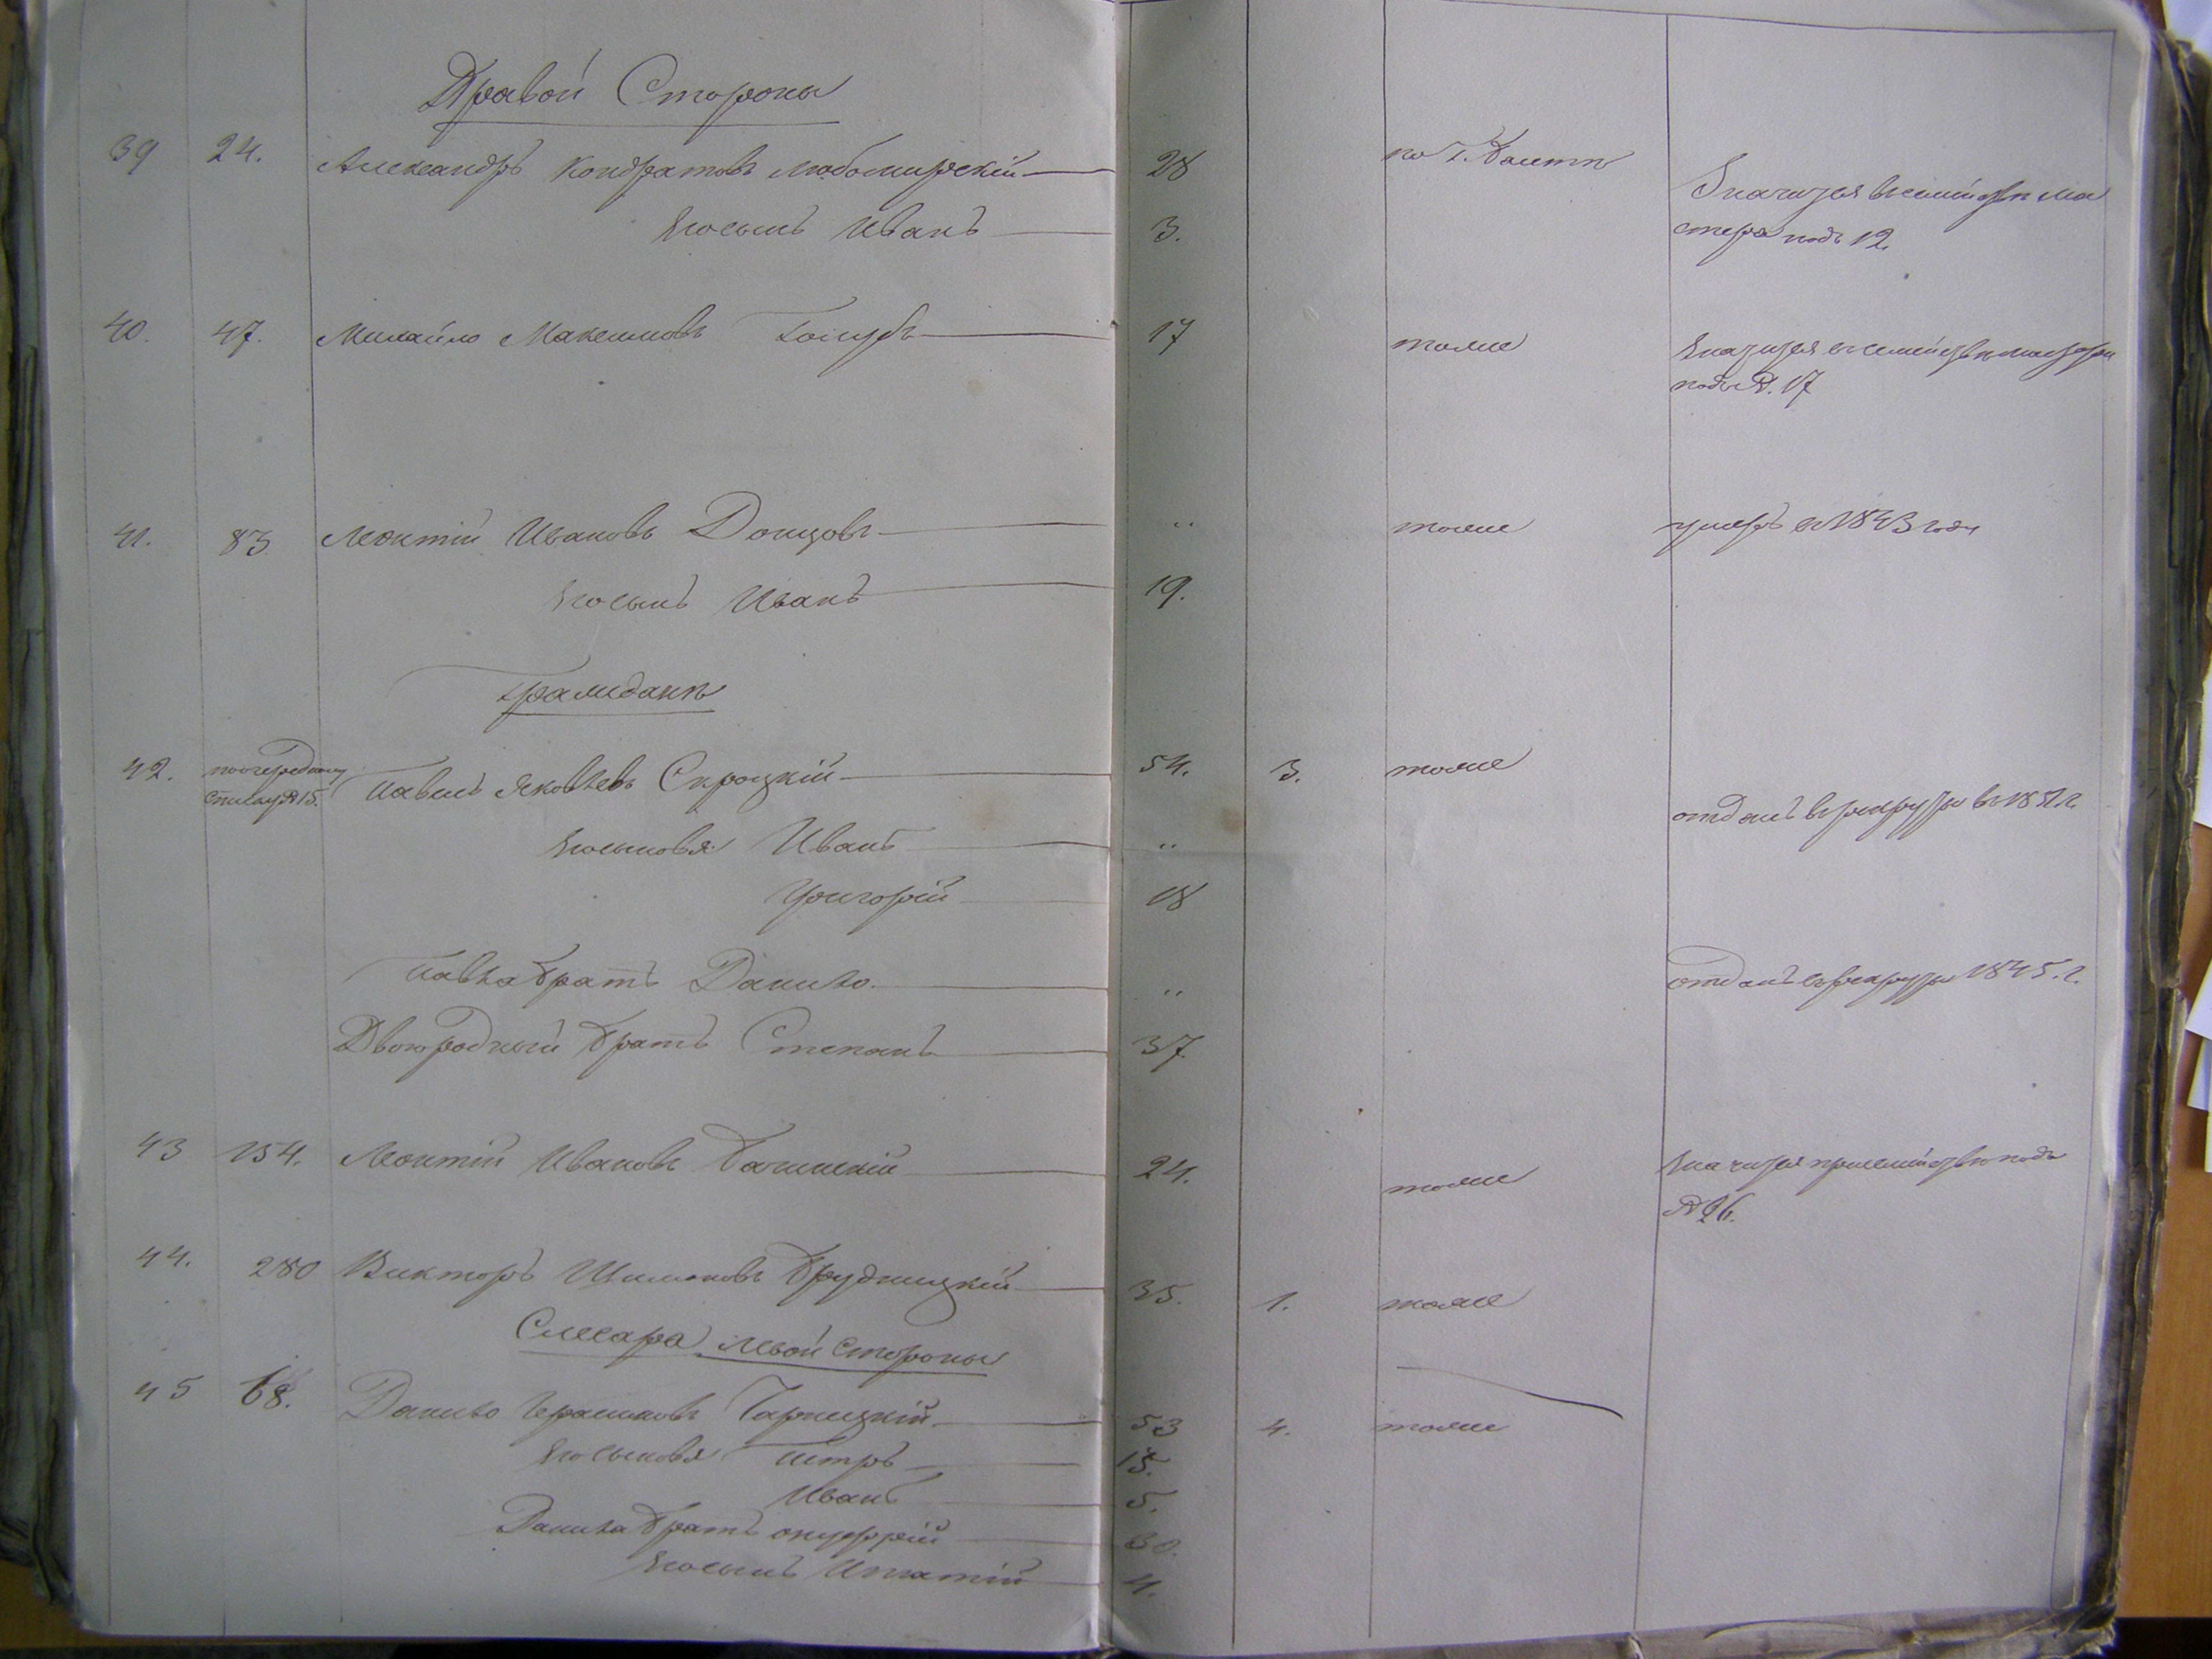 Правой Стороны
39 24. Александръ Кондратовъ Любомирскій 28 по г. Значится въ семействѣ ма
Его сынъ Иванъ 3. стера подъ 12.
40. 47. Михайло Максимовъ Голубъ 17 тоже Значится въ семействѣ мастера
подъ № 17
41. 83. Леонтій Ивановъ Донцовъ „ тоже умеръ в 1843 году
Его сынъ Иванъ 19.
Гражданъ
42. по очередному
списку № 15. Павелъ Яковлевъ Скроцкій 54. 3. тоже
Его сыновья Иванъ „ отданъ в рекруты в 1851 г.
Григорій 18
Павла братъ Данило. „ отданъ в рекруты 1845. г.
Двоюродный братъ Степанъ 37
43 154. Леонтій Ивановъ Бачинскій 24. тоже Значится при семействѣ подъ
№ 26.
44. 280 Викторъ Шимоновъ Брудницкій 35. 1. тоже
Слесаря Лѣвой Стороны
45 68. Данило Герасимовъ Тарницкій. 53 4. тоже
Его сыновья Петръ 15.
Иванъ 5.
Данила братъ Онуфрій 30.
Его сынъ Игнатій 4.